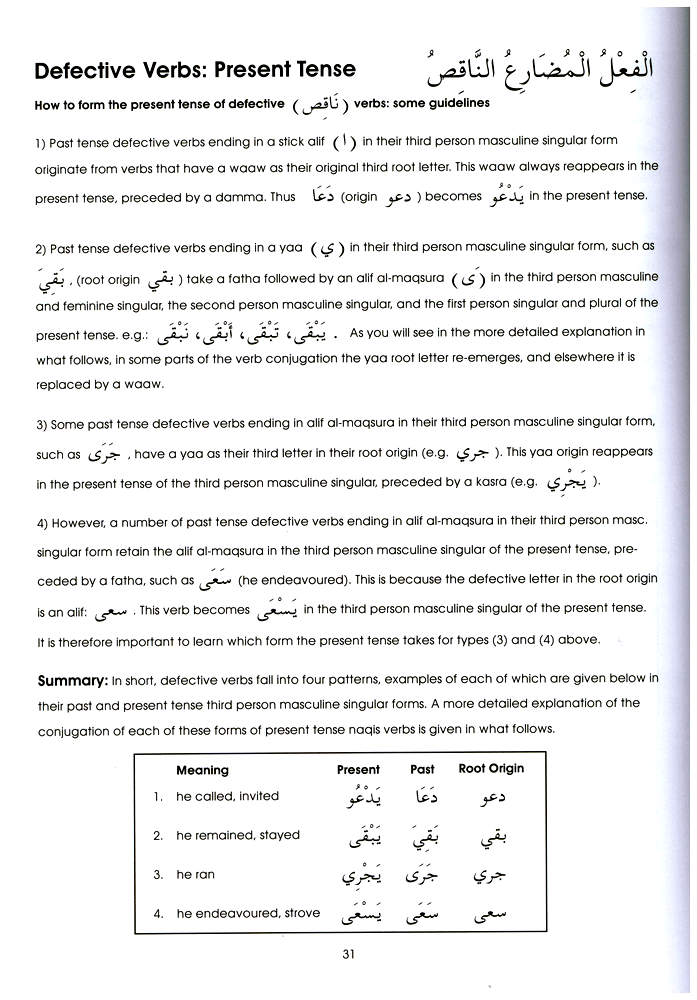 Defective Verbs: Present Tense الْفِعْلُ الْمُضَارِعُ النَّاقِصُ
How to form the present tense of defective (نَاقِص) verbs: some guidelines
1) Past tense defective verbs ending in a stick alif (ا) in their third person masculine singular form
originate from verbs that have a waaw as their original third root letter. This waaw always reappears in the
present tense, preceded by a damma. Thus دَعَا (origin دعو ) becomes يَدْعُو in the present tense.
2) Past tense defective verbs ending in a yaa (ي) in their third person masculine singular form, such as
بَقِيَ , (root origin بقي ) take a fatha followed by an alif al-maqsura (َى) in the third person masculine
and feminine singular, the second person masculine singular, and the first person singular and plural of the
present tense. e.g.: يَبْقَى، تَبْقَى، أَبْقَى، نَبْقَى . As you will see in the more detailed explanation in
what follows, in some parts of the verb conjugation the yaa root letter re-emerges, and elsewhere it is
replaced by a waaw.
3) Some past tense defective verbs ending in alif al-maqsura in their third person masculine singular form,
such as جَرَى , have a yaa as their third letter in their root origin (e.g. جري ). This yaa origin reappears
in the present tense of the third person masculine singular, preceded by a kasra (e.g. يَجْرِي ).
4) However, a number of past tense defective verbs ending in alif al-maqsura in their third person masc.
singular form retain the alif al-maqsura in the third person masculine singular of the present tense, pre-
ceded by a fatha, such as سَعَى (he endeavoured). This is because the defective letter in the root origin
is an alif: سعى . This verb becomes يَسْعَى in the third person masculine singular of the present tense.
It is therefore important to learn which form the present tense takes for types (3) and (4) above.
Summary: In short, defective verbs fall into four patterns, examples of each of which are given below in
their past and present tense third person masculine singular forms. A more detailed explanation of the
conjugation of each of these forms of present tense naqis verbs is given in what follows.
Meaning Present Past Root Origin
1. he called, invited يَدْعُو دَعَا دعو
2. he remained, stayed يَبْقَى بَقِيَ بقي
3. he ran يَجْرِي جَرَى جري
4. he endeavoured, strove يَسْعَى سَعَى سعى
31